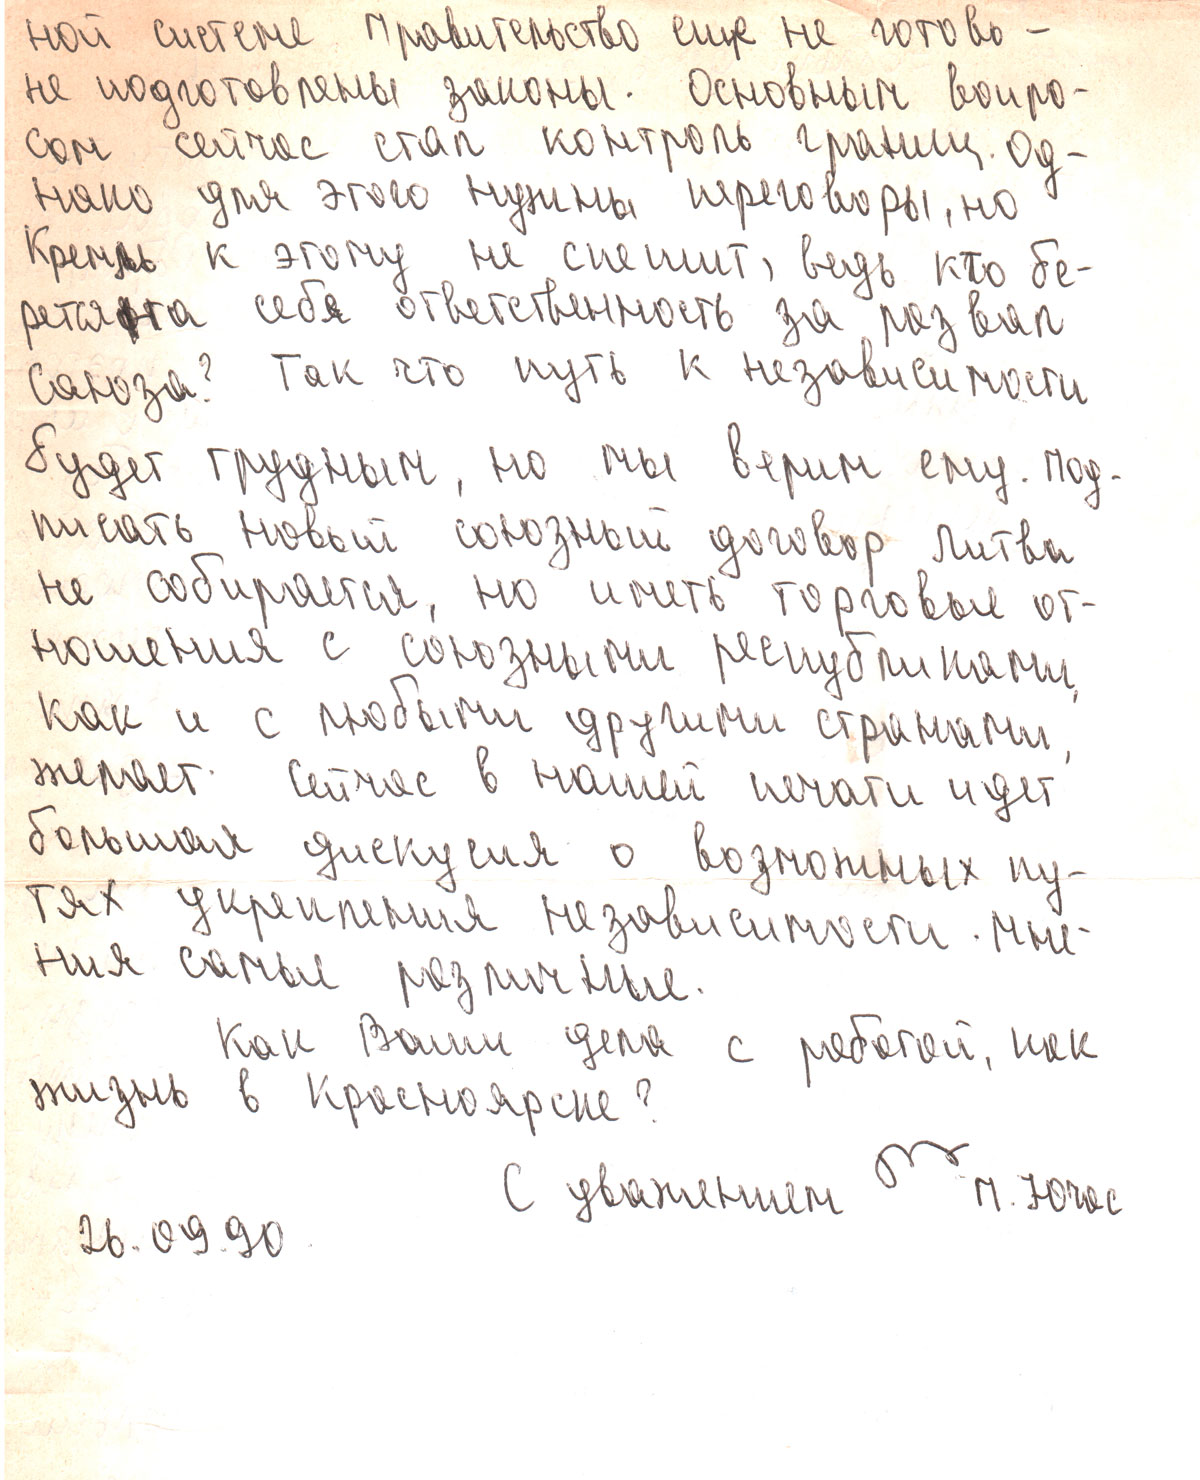 ной системе правительство еще не готово –
не подготовлены законы. Основным вопро-
сом сейчас стал контроль границ. Од-
нако для этого нужны переговоры, но
Кремль к этому не спешит, ведь кто бе-
рется на себя ответственность за развал
Союза? Так что путь к независимости
будет трудным, но мы верим ему. Под-
писать новый союзный договор Литва
не собирается, но иметь торговые от-
ношения с союзными республиками,
как и с любыми другими странами,
желает. Сейчас в нашей печати идет
большая дискусия о возможных пу-
тях укрепления независимости. Мне-
ния самые различные.
Как Ваши дела с работой, как
жизнь в Красноярске?
С уважением М. Ючас
26.09.90